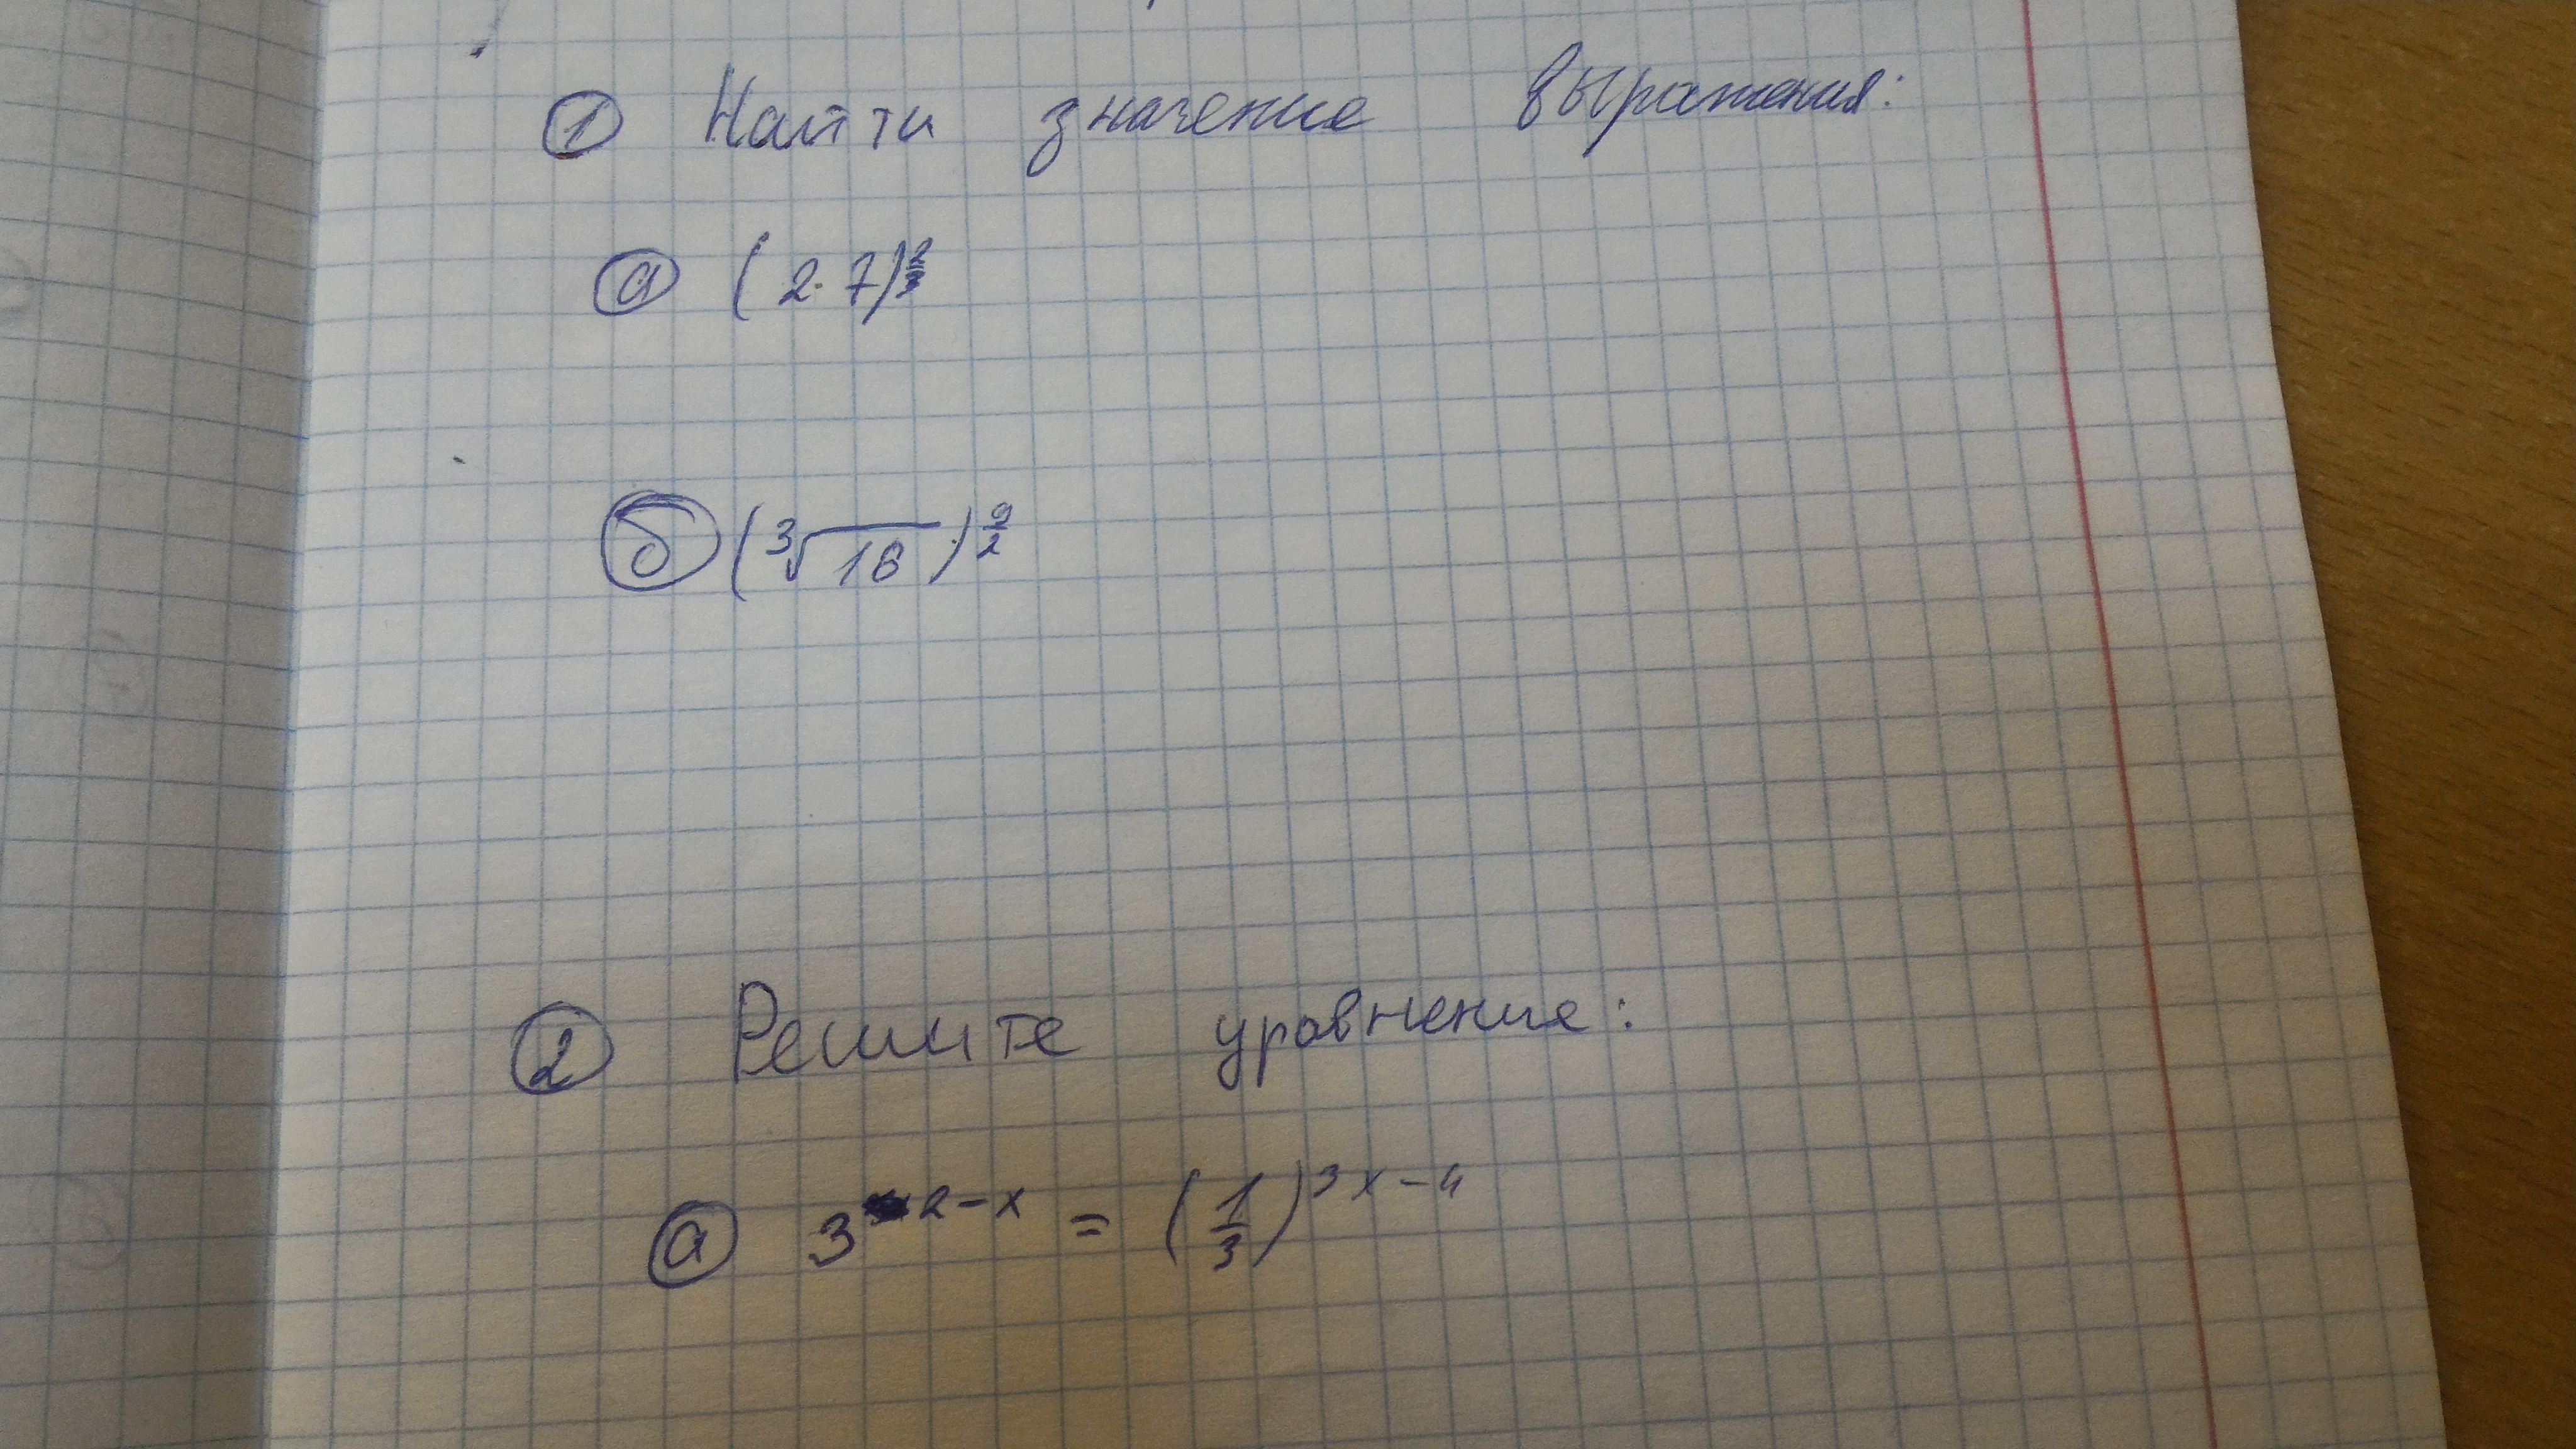 ① Найти значение выражения:
а (2·7)
б (³√16)^(9/2)
② Решите уравнение:
а 3^(2-x) = (1/3)^(3x-4)